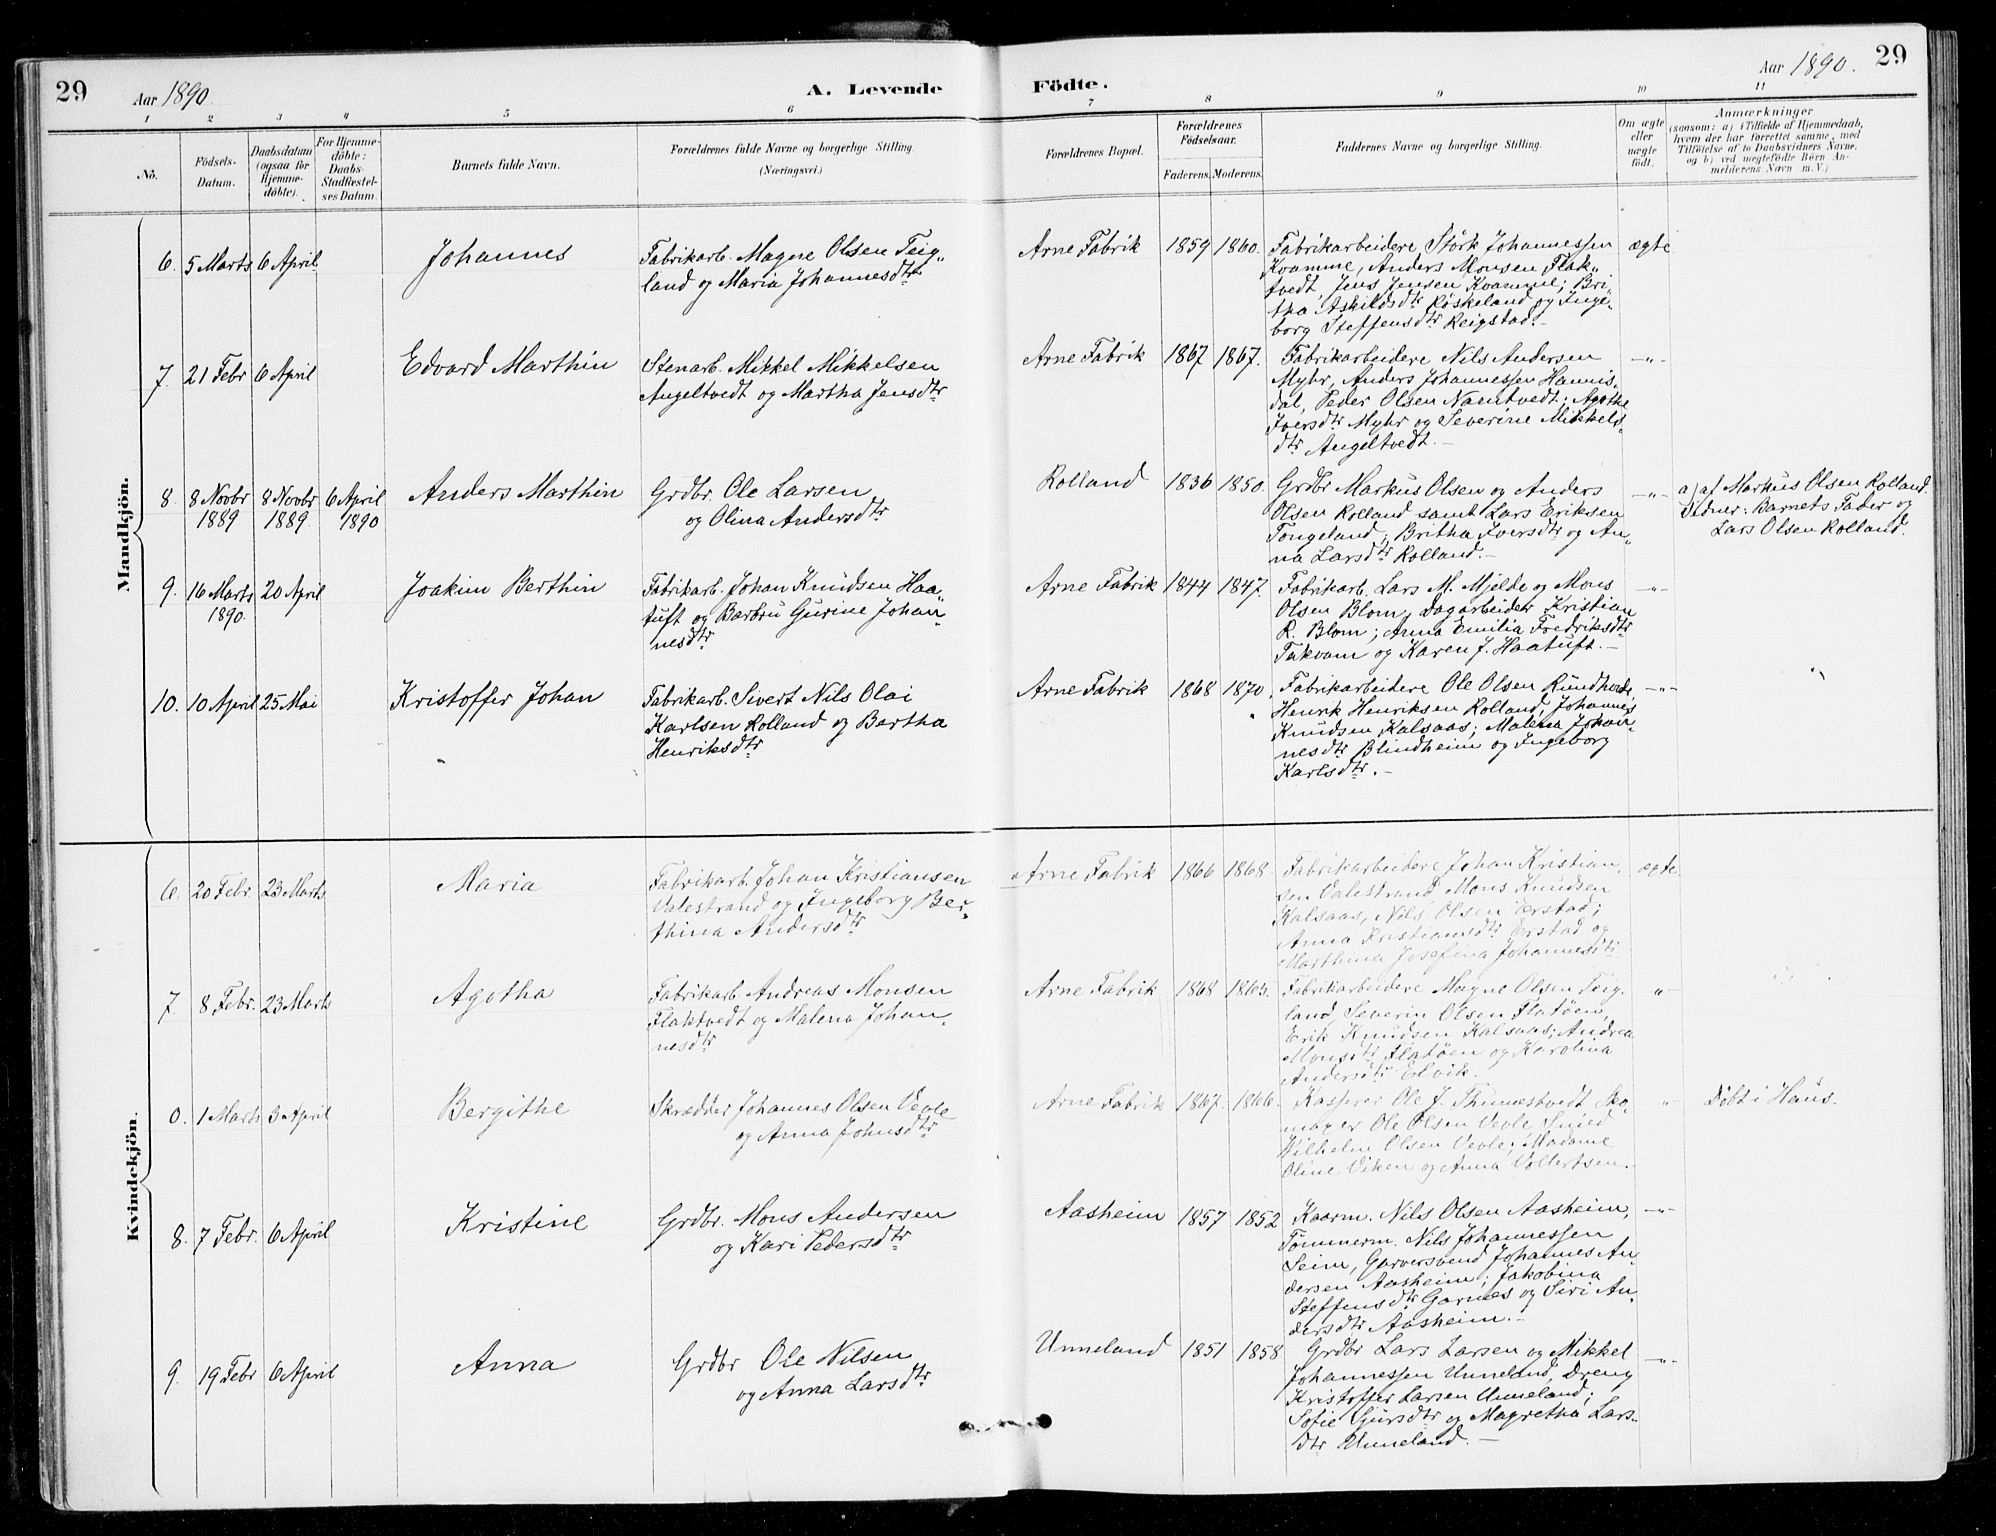 29
Aar 1890.
A. Levende
Födte.
Aar 1890.
29
1 2 3 4 5 6 7 8 9 10 11
No.
Födsels-
Datum.
Daabsdatum
(ogsaa for
Hjemme-
döbte).
For Hjemme-
döbte:
Daabs-
Stadfæstel-
ses Datum.
Barnets fulde Navn.
Forældrenes fulde Navne og borgerlige Stilling.
(Næringsvei.)
Forældrenes Bopæl.
Forældrenes
Födselsaar.
Faderens. Moderens.
Faddernes Navne og borgerlige Stilling.
Om ægte
eller
uægte
födt.
Anmærkninger
(saasom: a) i Tilfælde af Hjemmedaab,
hvem der har forrettet samme, med
Tilföielse af to Daabsvidners Navne,
og b) ved uægtefödte Börn An-
melderens Navn m. V.)
Mandkjön.
6. 5 Marts 6 April
Johannes
Fabrikarb. Magne Olsen Teig-
land og Maria Johannesdtr
Arne Fabrik 1859 1860.
Fabrikarbeidere Störk Johannessen
Kvamme, Anders Monsen Flak-
tvedt, Jens Jensen Kvamme; Bri-
tha Askildsdtr Röskeland og Inge-
borg Steffensdtr Reigstad.-
ægte
7. 21 Febr 6 April
Edvard Marthin
Stenarb. Mikkel Mikkelsen
Angeltvedt og Martha Jensdtr
Arne Fabrik 1867 1867.
Fabrikarbeidere Nils Andersen
Myhr, Anders Johannessen Hannis-
dal, Peder Olsen Namtvedt; Agothe
Iversdtr Myhr og Severine Mikkels-
dtr Angeltvedt.-
-"-
8. 8 Novbr 8 Novbr 6 April
1889 1889. 1890
Anders Marthin
Grdbr. Ole Larsen
og Olina Andersdtr
Rolland 1836 1850.
Grdbr Markus Olsen og Anders
Olsen Rolland samt Lars Eriksen
Tongeland; Britha Iversdtr og An-
na Larsdtr Rolland.-
-"-
a) af Markus Olsen Rolland.
Vidner: Barnets Fader og
Lars Olsen Rolland.
9. 16 Marts 20 April
1890.
Joakim Berthin
Fabrikarb. Johan Knudsen Haa-
tuft og Barbru Gurine Johan-
nesdtr
Arne Fabrik 1844 1847.
Fabrikarb. Lars M. Mjelde og Mons
Olsen Blom, Dagarbeider Kristian
R. Blom; Anna Emilia Fredriksdtr
Takvam og Karen J. Haatuft.-
-"-
10. 10 April 25 Mai
Kristoffer Johan
Fabrikarb. Sivert Nils Olai
Karlsen Rolland og Bertha
Henriksdtr
Arne Fabrik 1868 1870.
Fabrikarbeidere Ole Olsen Rundhovde,
Henrik Henriksen Rolland, Johannes
Knudsen Kalsaas; Malena Johan-
nesdtr Blindheim og Ingeborg
Karlsdtr.-
-"-
Kvindekjön.
6. 20 Febr. 23 Marts
Maria
Fabrikarb. Johan Kristiansen
Valestrand og Ingeborg Ber-
thina Andersdtr
Arne Fabrik 1866 1868.
Fabrikarbeidere Johan Kristian-
sen Valestrand, Mons Knudsen
Kalsaas, Nils Olsen Erstad;
Anna Kristiansdtr Erstad og
Marthina Josefina Johannesdtr
ægte
7 8 Febr. 23 Marts
Agotha
Fabrikarb. Andreas Monsen
Flaktvedt og Malena Johan-
nesdtr
Arne Fabrik 1868 1865.
Fabrikarbeidere Magne Olsen Teig-
land, Severin Olsen Flatöen,
Erik Knudsen Kalsaas; Andrea
Monsdtr Flatöen og Karolina
Andersdtr Elvik.
"-
0. 1 Marts 3 April
Bergithe
Skrædder Johannes Olsen Vevle
og Anna Johnsdtr
Arne Fabrik 1867. 1866.
Kasserer Ole J. Thunestvedt Sko-
mager Ole Olsen Vevle, Smed
Wilhelm Olsen Vevle; Madame
Oline Viken og Anna Vollertsen.
"-
Döbt i Haus.
8. 7 Febr. 6 April
Kristine
Grdbr. Mons Andersen
og Kari Pedersdtr
Aasheim 1857 1852
Kaarm. Nils Olsen Aasheim,
Tömmerm. Nils Johannessen
Seim, Garversvend Johannes An-
dersen Aasheim; Jakobina
Steffensdtr Garnes og Siri An-
dersdtr Aasheim.-
-"-
9. 19 Febr 6 April
Anna
Grdbr Ole Nilsen
og Anna Larsdtr
Unneland 1851 1858
Grdbr Lars Larsen og Mikkel
Johannessen Unneland, Dreng
Kristoffer Larsen Unneland;
Sofie Sjursdtr og Magretha Lars-
dtr Unneland.-
-"-